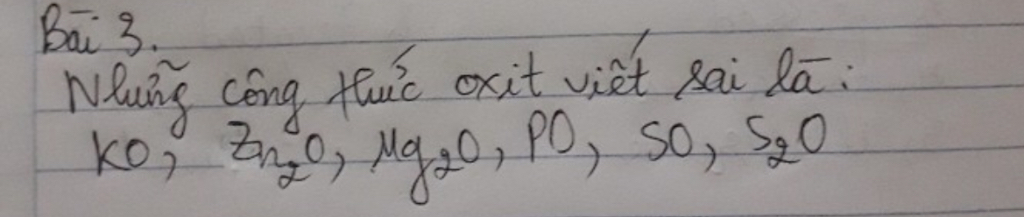 Bài 3.
Những công thức oxit viết sai là:
KO, Zn₂O, Mg₂O, PO, SO, S₂O